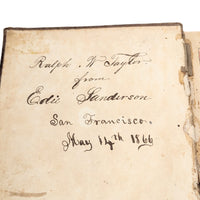 Ralph W Taylor
from
Edie Sanderson
San Francisco.
May 14th 1866